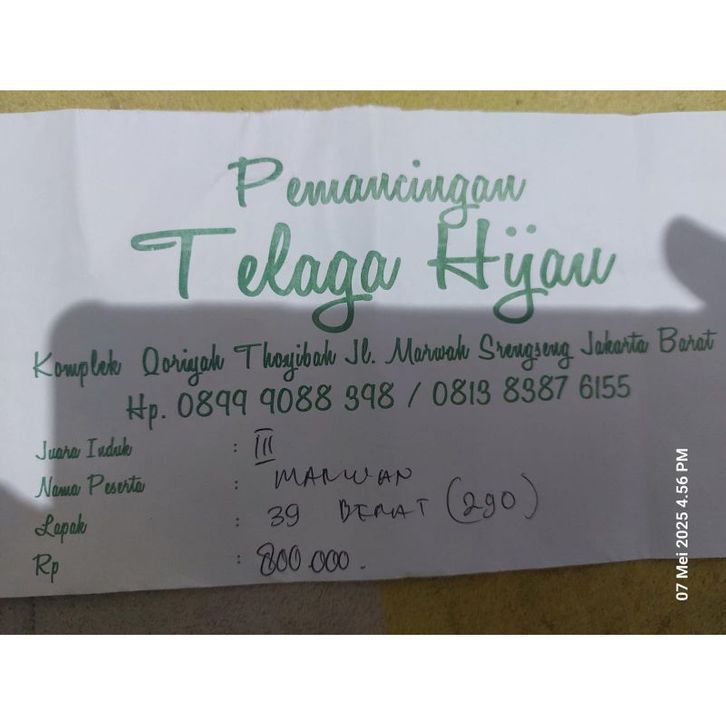 Pemancingan
Telaga Hijau
Komplek Qoriyah Thoyibah Jl. Marwah Srengseng Jakarta Barat
Hp. 0899 9088 398 / 0813 8387 6155
Juara Induk : III
Nama Peserta : MARWAN
Lapak : 39 BERAT (290)
Rp : 800.000.
07 Mei 2025 4.56 PM